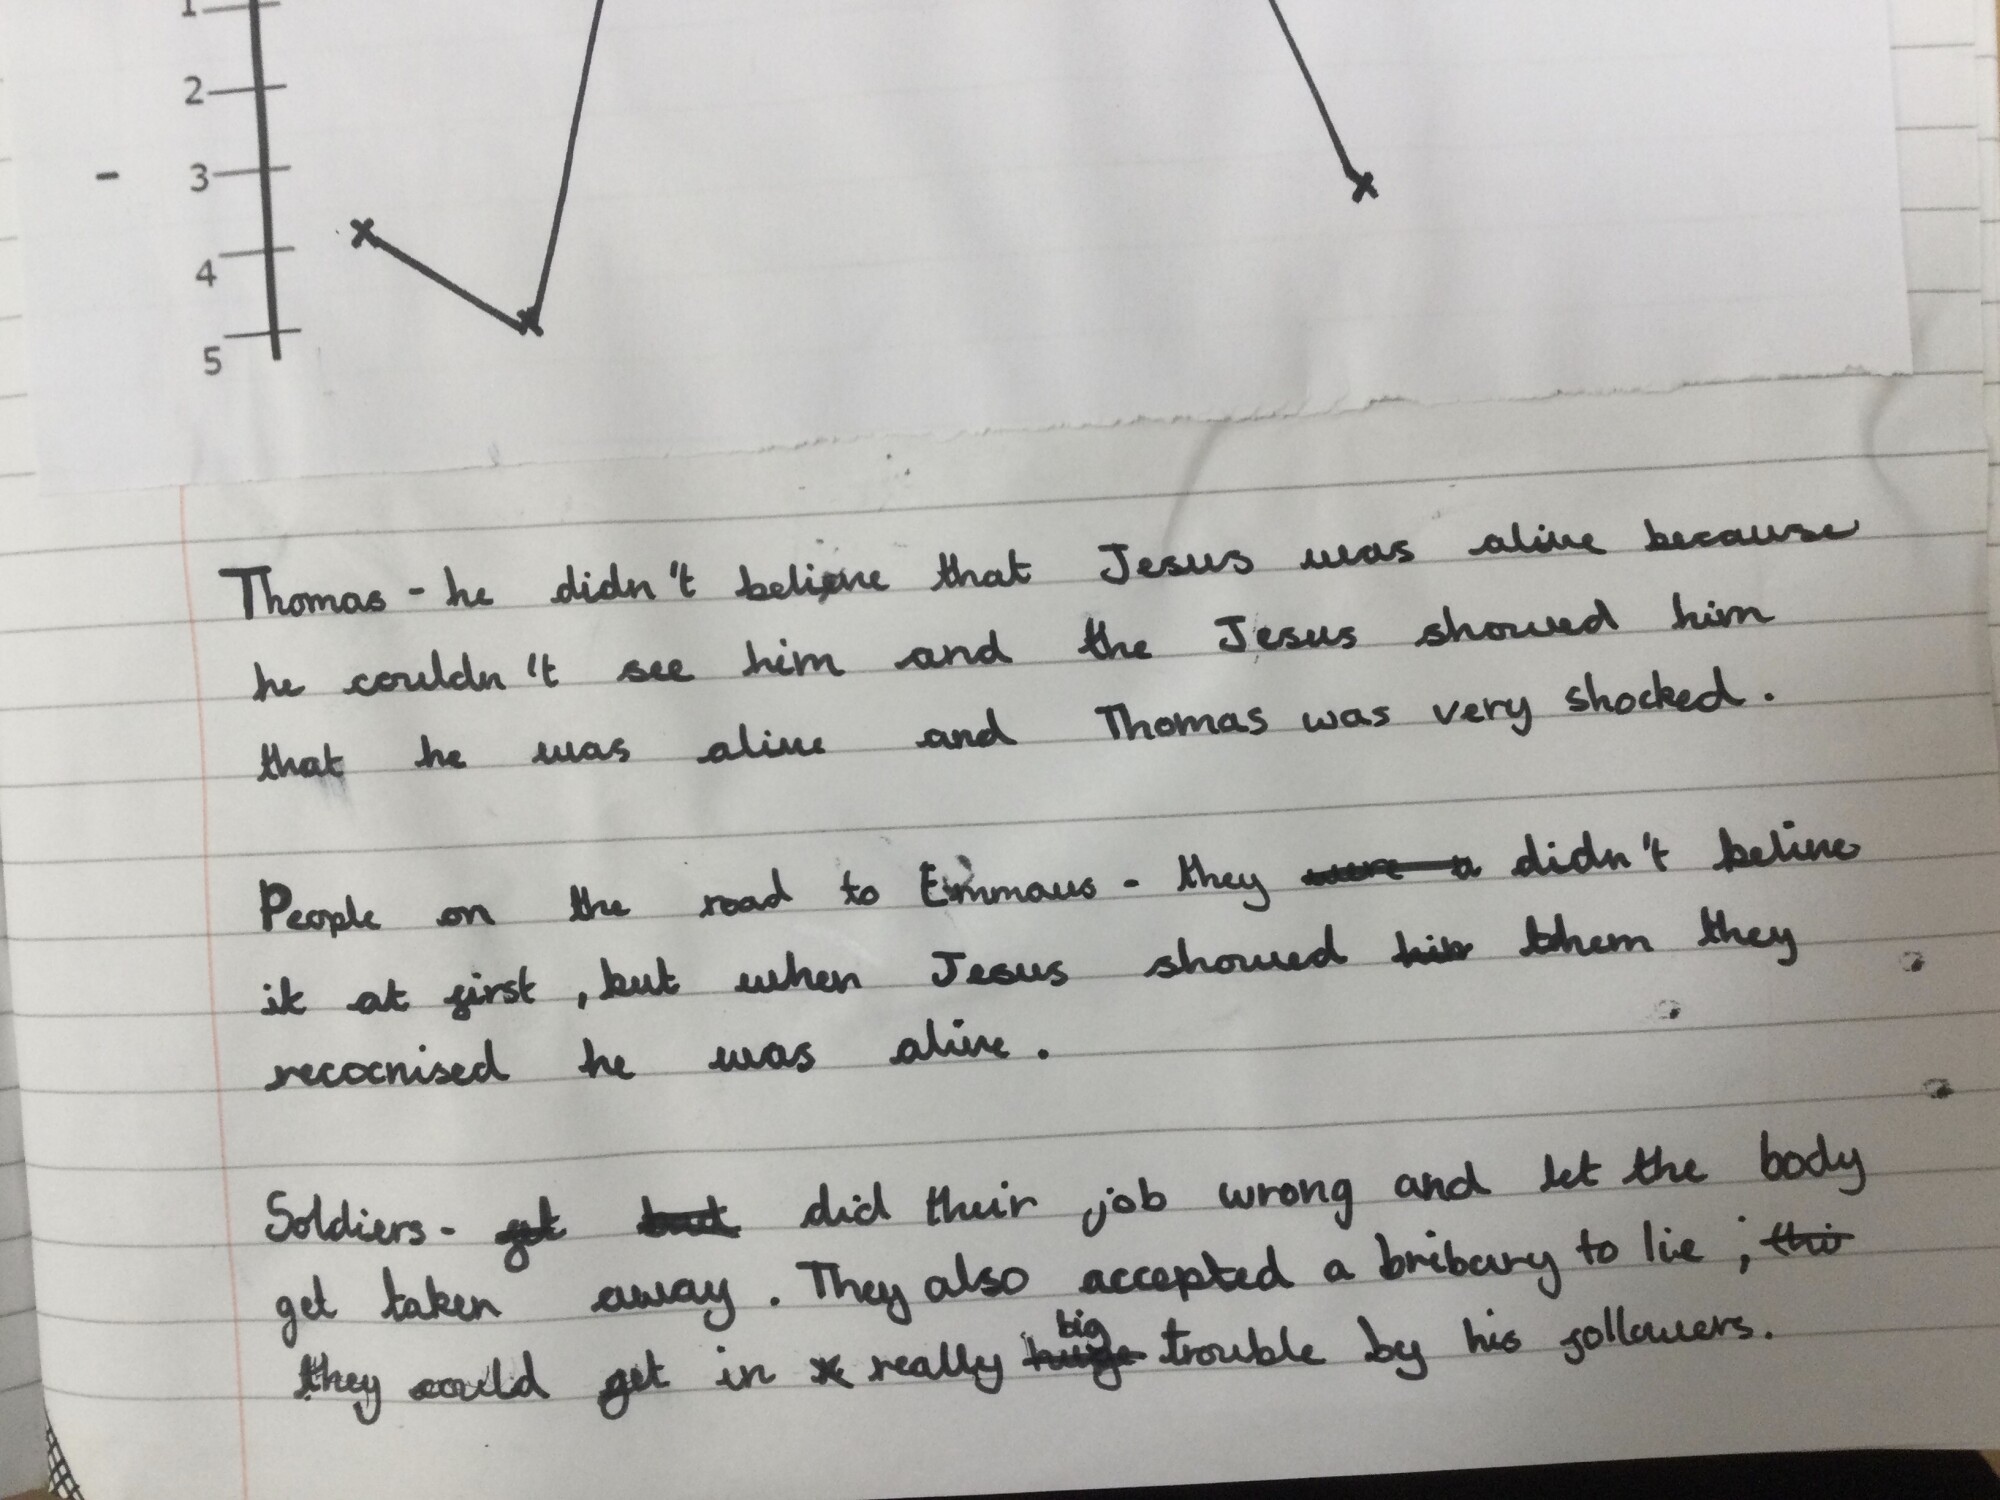 1
2
- 3
4
5
Thomas - he didn't believe that Jesus was alive because
he couldn't see him and the Jesus showed him
that he was alive and Thomas was very shocked.
People on the road to Emmaus - they were a didn't belive
it at first, but when Jesus showed him them they
recocnised he was alive.
Soldiers - get but did their job wrong and let the body
get taken away. They also accepted a bribary to lie ; this
big
they could get in really huge trouble by his followers.